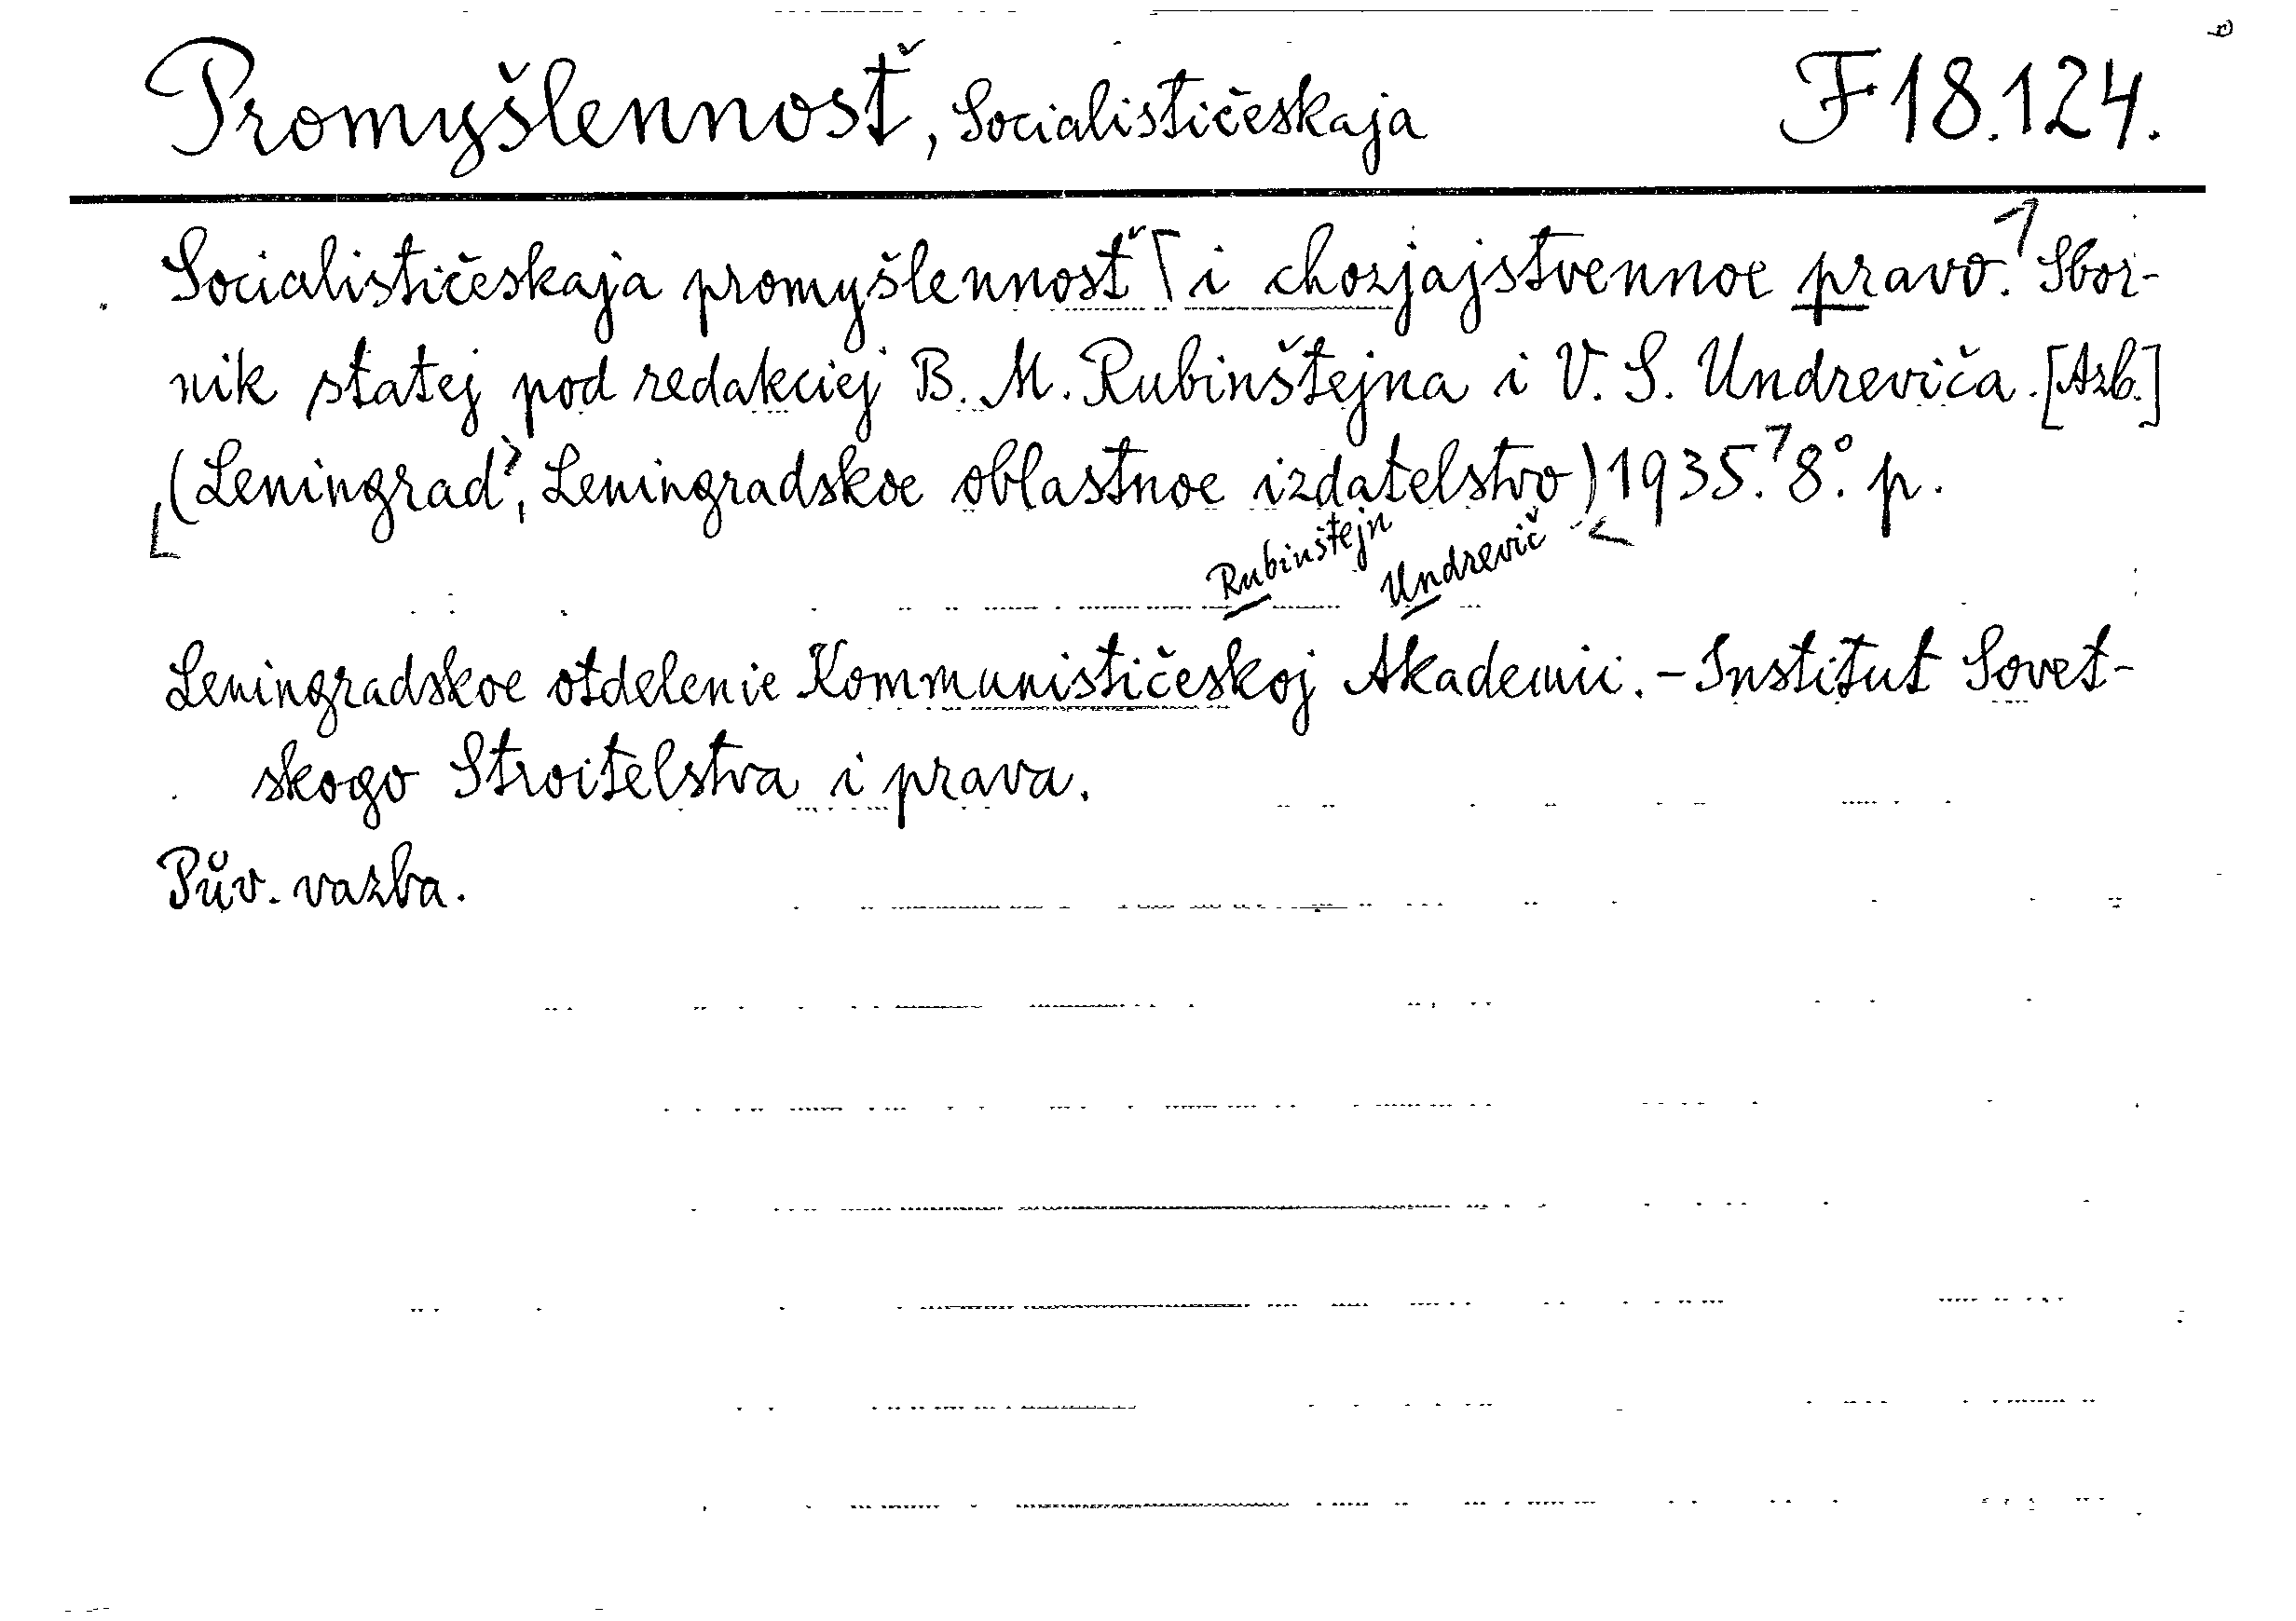 Promyšlennosť, Socialističeskaja F 18.124.
Socialističeskaja promyšlennosť i chozjajstvennoe pravo. Sbor-
nik statej pod redakciej B. M. Rubinštejna i V. S. Undreviča. [Azb.]
(Leningrad, Leningradskoe oblastnoe izdatelstvo) 1935. 8°. p.
Rubinštejn Undrevič
Leningradskoe otdelenie Kommunističeskoj Akademii. - Institut Sovet-
skogo Stroitelstva i prava.
Pův. vazba.